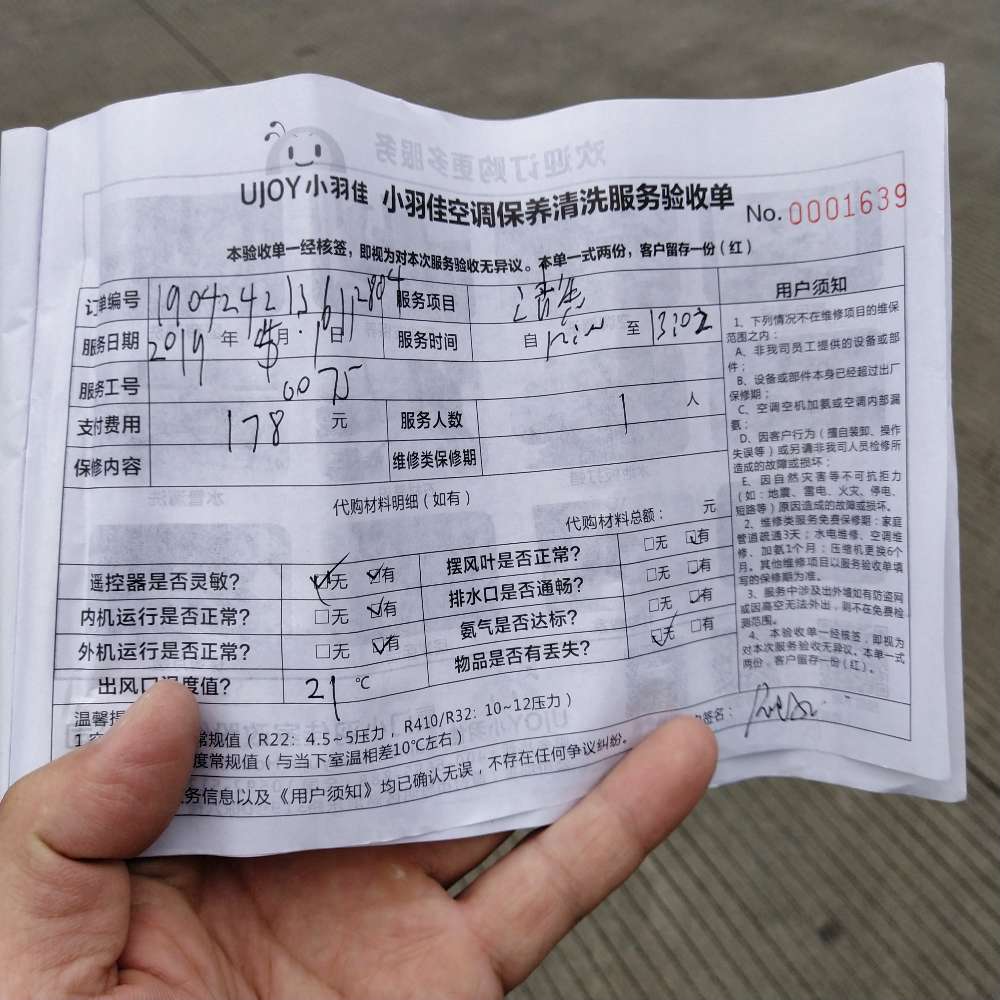 欢迎订购更多服务
UJOY小羽佳 小羽佳空调保养清洗服务验收单 No.0001639
本验收单一经核签，即视为对本次服务验收无异议。本单一式两份，客户留存一份（红）
订单编号 服务项目
服务日期 2019 年 月 日 服务时间 自 至
服务工号 0075
支付费用 178 元 服务人数 1 人
保修内容 维修类保修期
代购材料明细（如有）
代购材料总额： 元
遥控器是否灵敏？ 无 有 摆风叶是否正常？ 无 有
内机运行是否正常？ 无 有 排水口是否通畅？ 无 有
外机运行是否正常？ 无 有 氨气是否达标？ 无 有
出风口温度值？ 21 ℃ 物品是否有丢失？ 无 有
常规值（R22：4.5~5压力，R410/R32：10~12压力）
度常规值（与当下室温相差10℃左右）
务信息以及《用户须知》均已确认无误，不存在任何争议纠纷。
签名：
用户须知
1、下列情况不在维修项目的维保
范围之内：
A、非我司员工提供的设备或部
件；
B、设备或部件本身已经超过出厂
保修期；
C、空调空机加氨或空调内部漏
氨；
D、因客户行为（擅自装卸、操作
失误等）或另请非我司人员检修所
造成的故障或损坏；
E、因自然灾害等不可抗拒力
（如：地震、雷电、火灾、停电、
短路等）原因造成的故障或损坏。
2、维修类服务免费保修期：家庭
管道疏通3天；水电维修、空调维
修、加氨1个月；压缩机更换6个
月。其他维修项目以服务验收单填
写的保修期为准。
3、服务中涉及出外墙如有防盗网
或因高空无法外出，则不在免费检
测范围。
4、本验收单一经核签，即视为
对本次服务验收无异议。本单一式
两份，客户留存一份（红）。